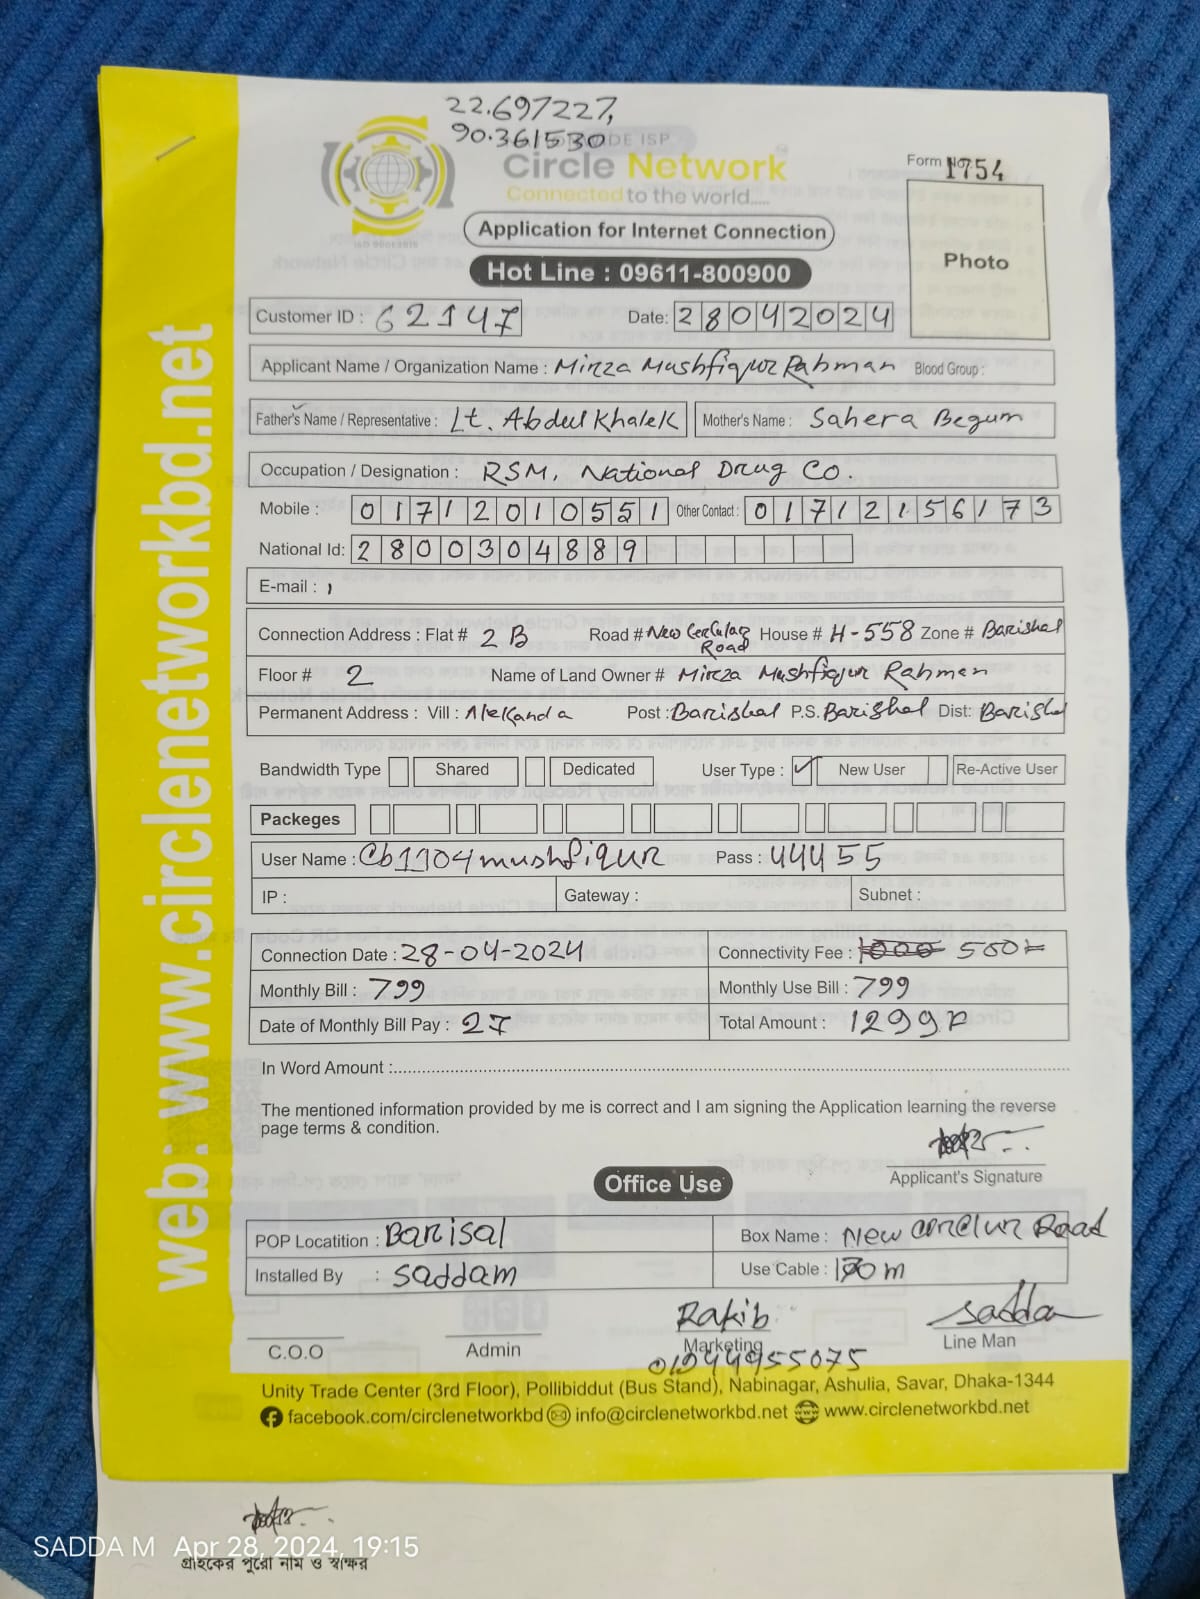 22.697227,
90.361530
Circle Network
Connected to the world.....
Form No 1754
Application for Internet Connection
Photo
Hot Line : 09611-800900
Customer ID : 62147 Date: 28042024
Applicant Name / Organization Name : Mirza Mushfiqur Rahman Blood Group :
Father's Name / Representative : Lt. Abdul Khalek Mother's Name : Sahera Begum
Occupation / Designation : RSM, National Drug Co.
Mobile : 01712010551 Other Contact : 01712156173
National Id: 2800304889
E-mail :
Connection Address : Flat # 2 B Road # New Road House # H-558 Zone # Barishal
Floor # 2 Name of Land Owner # Mirza Mushfiqur Rahman
Permanent Address : Vill : Alekanda Post : Barishal P.S. Barishal Dist: Barishal
Bandwidth Type Shared Dedicated User Type : New User Re-Active User
Packeges
User Name : Cb1104mushfiqur Pass : 44455
IP : Gateway : Subnet :
Connection Date : 28-04-2024 Connectivity Fee : 1000 500/=
Monthly Bill : 799 Monthly Use Bill : 799
Date of Monthly Bill Pay : 27 Total Amount : 1299
In Word Amount :
The mentioned information provided by me is correct and I am signing the Application learning the reverse
page terms & condition.
Applicant's Signature
Office Use
POP Locatition : Barisal Box Name : New Road
Installed By : Saddam Use Cable : m
Rakib Sadda
C.O.O Admin Marketing Line Man
Unity Trade Center (3rd Floor), Pollibiddut (Bus Stand), Nabinagar, Ashulia, Savar, Dhaka-1344
facebook.com/circlenetworkbd info@circlenetworkbd.net www.circlenetworkbd.net
web: www.circlenetworkbd.net
SADDA M Apr 28, 2024, 19:15
গ্রাহকের পুরো নাম ও স্বাক্ষর